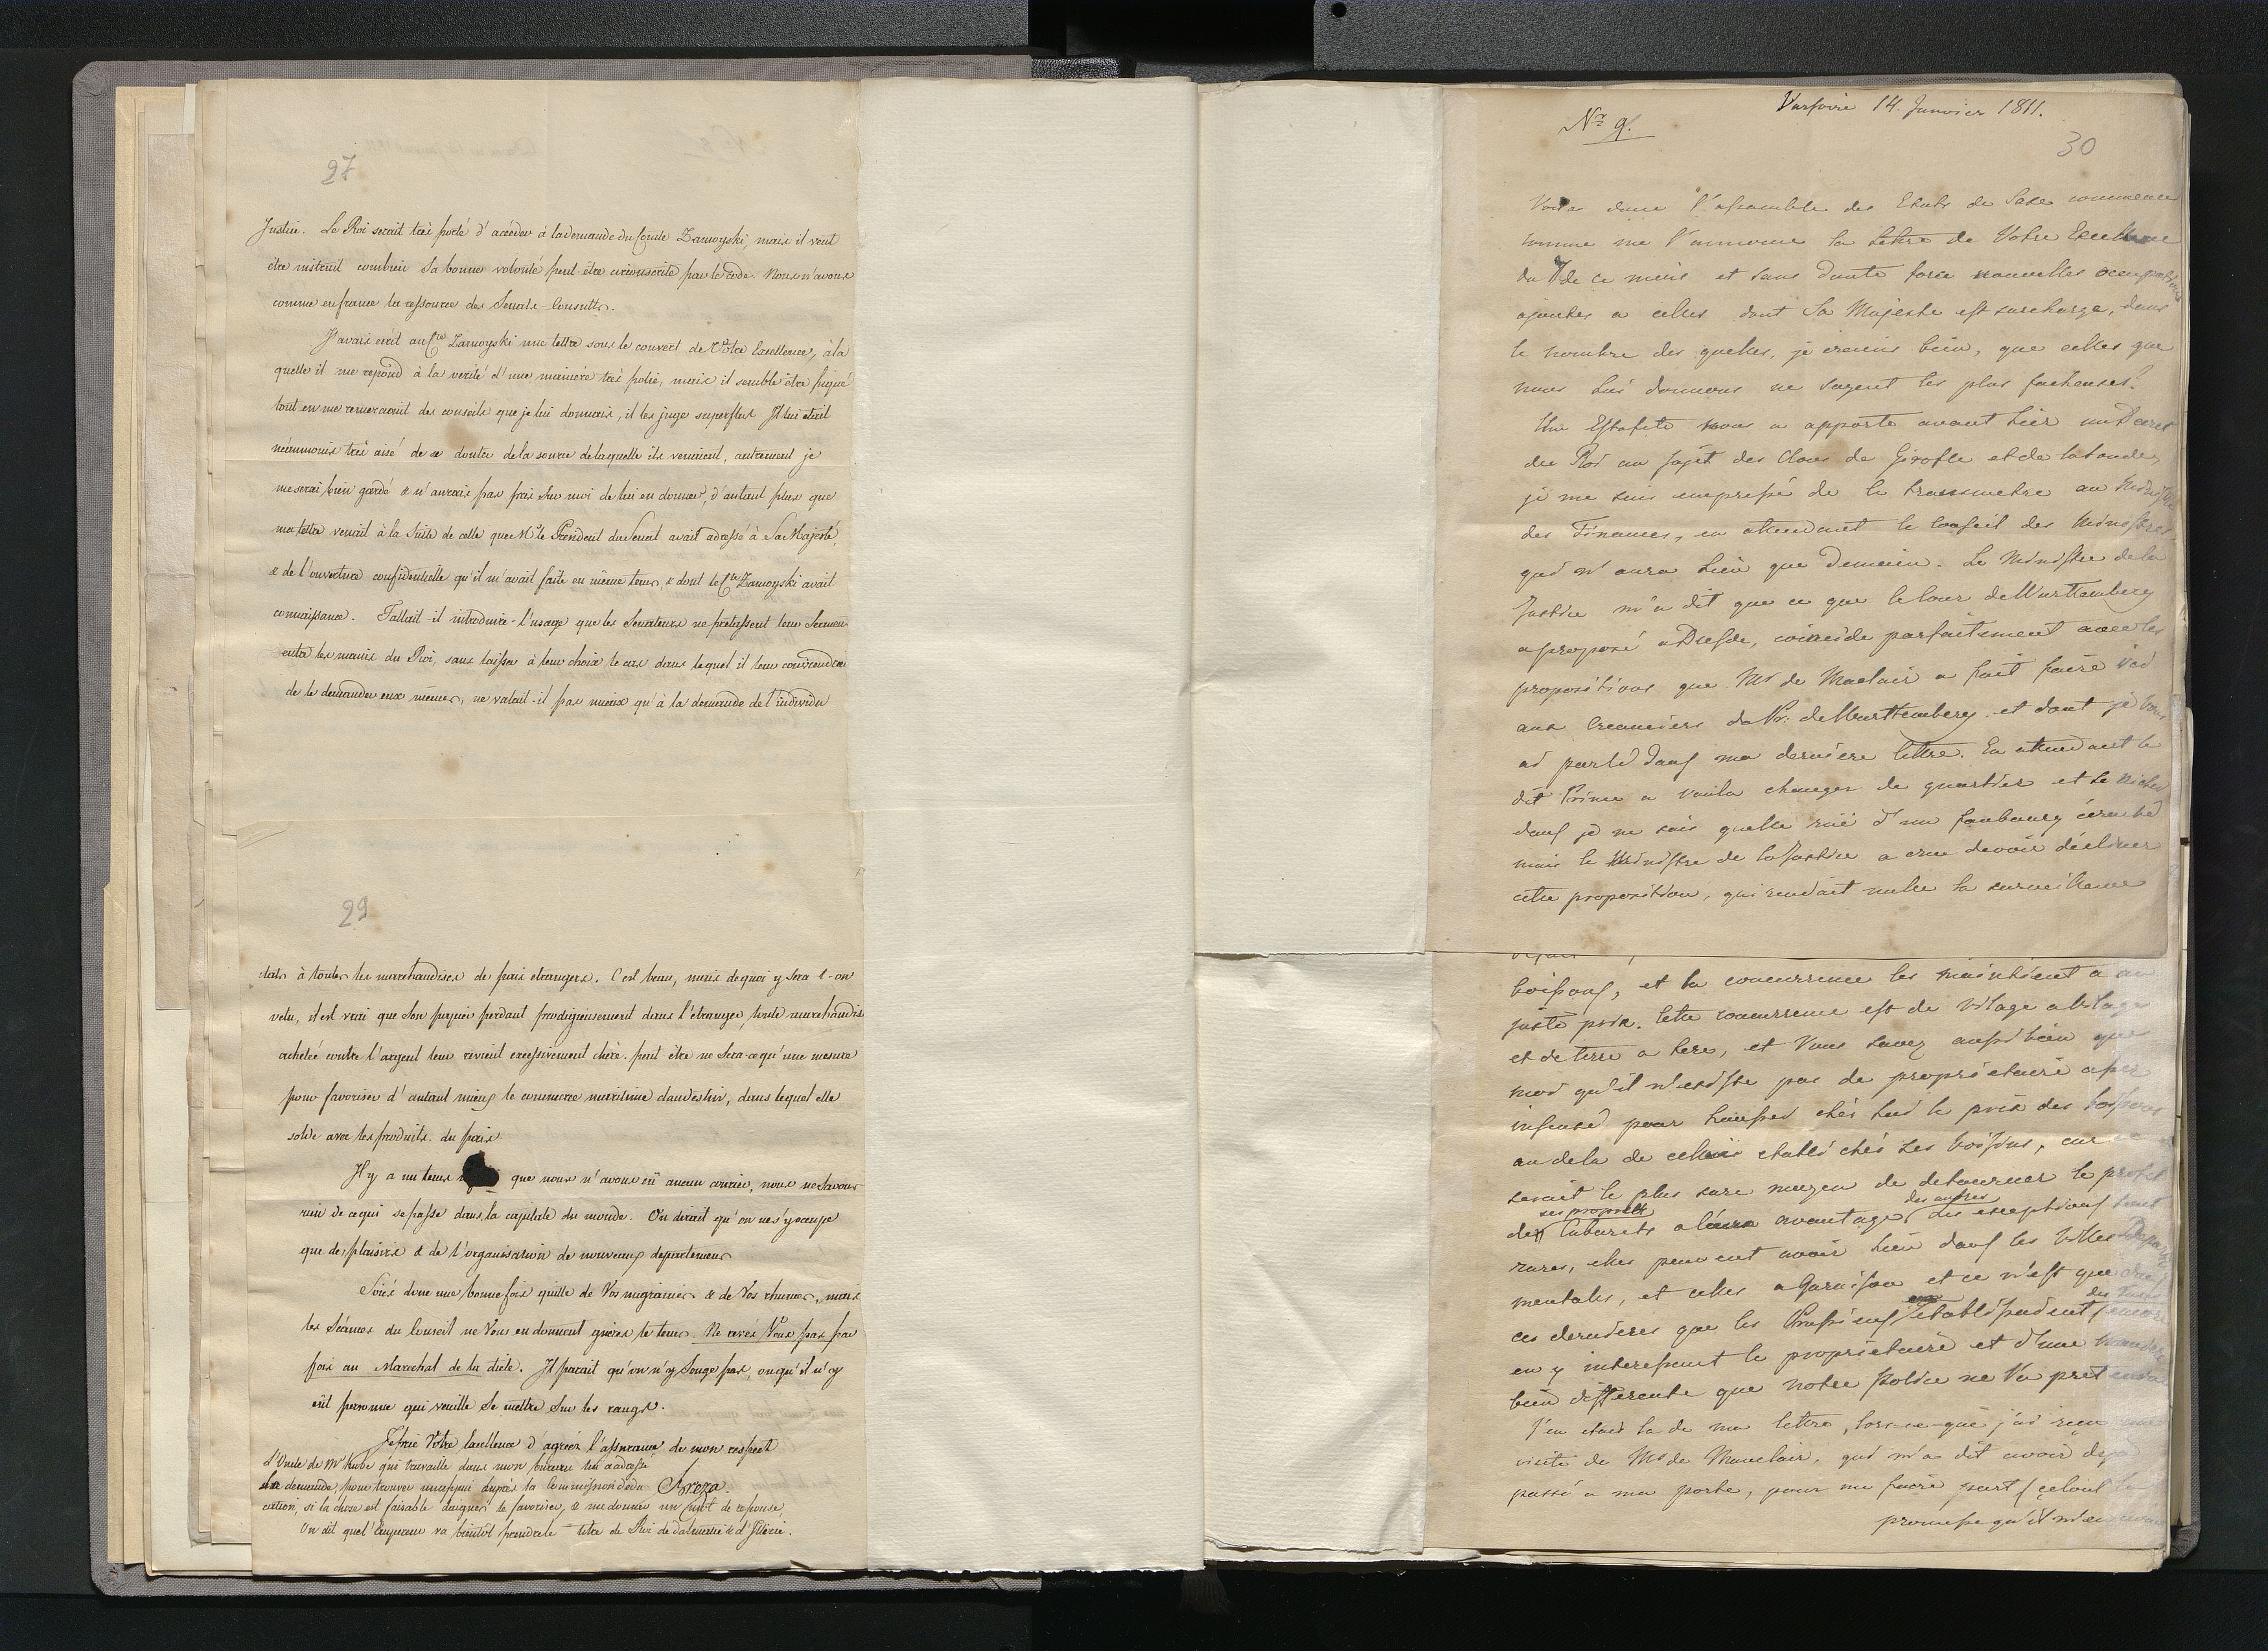 27
Justice. Le Roi serait très porté d'accéder à la demande du Comte Zamoyski, mais il veut
être instruit combien Sa bonne volonté peut-être circonscrite par le code. Nous n'avons
comme en france la ressource des Senatus-Consultes.
J'avais écrit au Cte Zamoyski une lettre sous le couvert de Votre Excellence, à la
quelle il me repond à la verité d'une manière très polie, mais il semble être piqué
tout en me remerciant des conseils que je lui donnais, il les juge superflus Il lui était
néanmoins très aisé de se douter de la source de laquelle ils venaient, autrement je
me serai bien gardé & n'aurais pas pris sur moi de lui en donner, d'autant plus que
ma lettre venait à la suite de celle que Mr le President du Senat avait adressé à Sa Majesté,
& de l'ouverture confidentielle qu'il m'avait faite en même tems, & dont le Cte Zamoyski avait
connaissance. Fallait-il introduire l'usage que les Senateurs ne pretassent leur Serment
entre les mains du Roi, sans laisser à leur choix le cas dans lequel il leur conviendrait
de le demander eux mêmes, ne valait-il pas mieux qu'à la demande de l'individu
29
à toutes les marchandises de païs etrangers. C'est beau, mais de quoi y sera t-on
vetu, il est vrai que Son papier perdant prodigieusement dans l'étranger, toute marchandise
achetée contre l'argent leur revient excessivement chère. peut être ne Sera-ce qu'une mesure
pour favoriser d'autant mieux le commerce maritime clandestin, dans lequel elle
solde avec les produits du païs.
Il y a un tems que nous n'avons eû aucun courier, nous ne Savons
rien de ce qui se passe dans la capitale du monde. On dirait qu'on ne s'y occupe
que de plaisirs & de l'organisation de nouveaux departemens
Soiés donc une bonne fois quitte de Vos migraines & de Vos rhumes, mais
les Séances du Conseil ne Vous en donnent guères le tems. Ne revés Vous pas par
fois au Marechal de la diète. Il parait qu'on n'y Songe pas, ou qu'il n'y
eût personne qui veuille Se mettre Sur les rangs.
Je prie Votre Excellence d'agréer l'assurance de mon respect
L'Oncle de Mr Kube qui travaille dans mon bureau lui a adressé
la demande, pour trouver un emploi auprès la commission d'edu Breza.
cation, si la chose est faisable daignés le favoriser, & me donner un mot de reponse,
On dit que l'Empereur va bientôt prendre le titre de Roi de dalmatie & d'Illirie.
Nro 9.
Varsovie 14. Janvier 1811.
30
Voila donc l'assemblée des Etats de Saxe commencée
comme me l'annonce la lettre de Votre Excellence
du 7 de ce mois et sans doute force nouvelles occupations
ajoutes a celles dont Sa Majeste est surchargé, dans
le nombre des quelles, je crains bien, que celles que
nous lui donnons ne soyent les plus facheuses.
Une Estafete nous a apporte avant hier un Decret
du Roi au sujet des Clous de Girofle et de la soude,
je me suis empressé de le transmetre au Ministre
des Finances, en attendant le Conseil des Ministres
qui n'aura lieu que demain. Le Ministre de la
Justice m'a dit que ce que la Cour de Wurttemberg
a proposé a Dresde, coincide parfaitement avec les
propositions que Mr de Maclair a fait faire ici
aux Creanciers du Pr: de Wurttemberg et dont je Vous
ai parlé dans ma derniere lettre. En attendant le
dit Prince a voulu changer de quartier et se nicher
dans je ne sais quelle ruë d'un faubourg écarté
mais le Ministre de la Justice a crue devoir décliner
cette proposition, qui rendait nulle la surveillance
boissons, et la concurrence les maintient a un
juste prix. Cette concurrence est de vilage a vilage
et de terre a terre, et Vous savez aussi bien que
moi qu'il n'existe pas de propriétaire assez
insensé pour hausser chés lui le prix des boissons
au dela de celui etabli chés ses voisins, car ce
serait le plus sure moyen de detourner le profit
ses propres des autres
des Cabarets a leurs avantages. Les exceptions sont
rares, elles peuvent avoir lieu dans les Villes Departe
mentales, et celles a Garnison et ce n'est que
ces dernieres que les Prussiens etablissaient
en y interessant le propriétaire et d'une maniere
bien differente que notre Police ne l'a pretendu
J'en etais la de ma lettre, lors-ce-que j'ai reçu une
visite de Mr de Mauclair, qui m'a dit avoir deja
passé a ma porte, pour me faire part (çelon la
promesse qu'il m'en avait